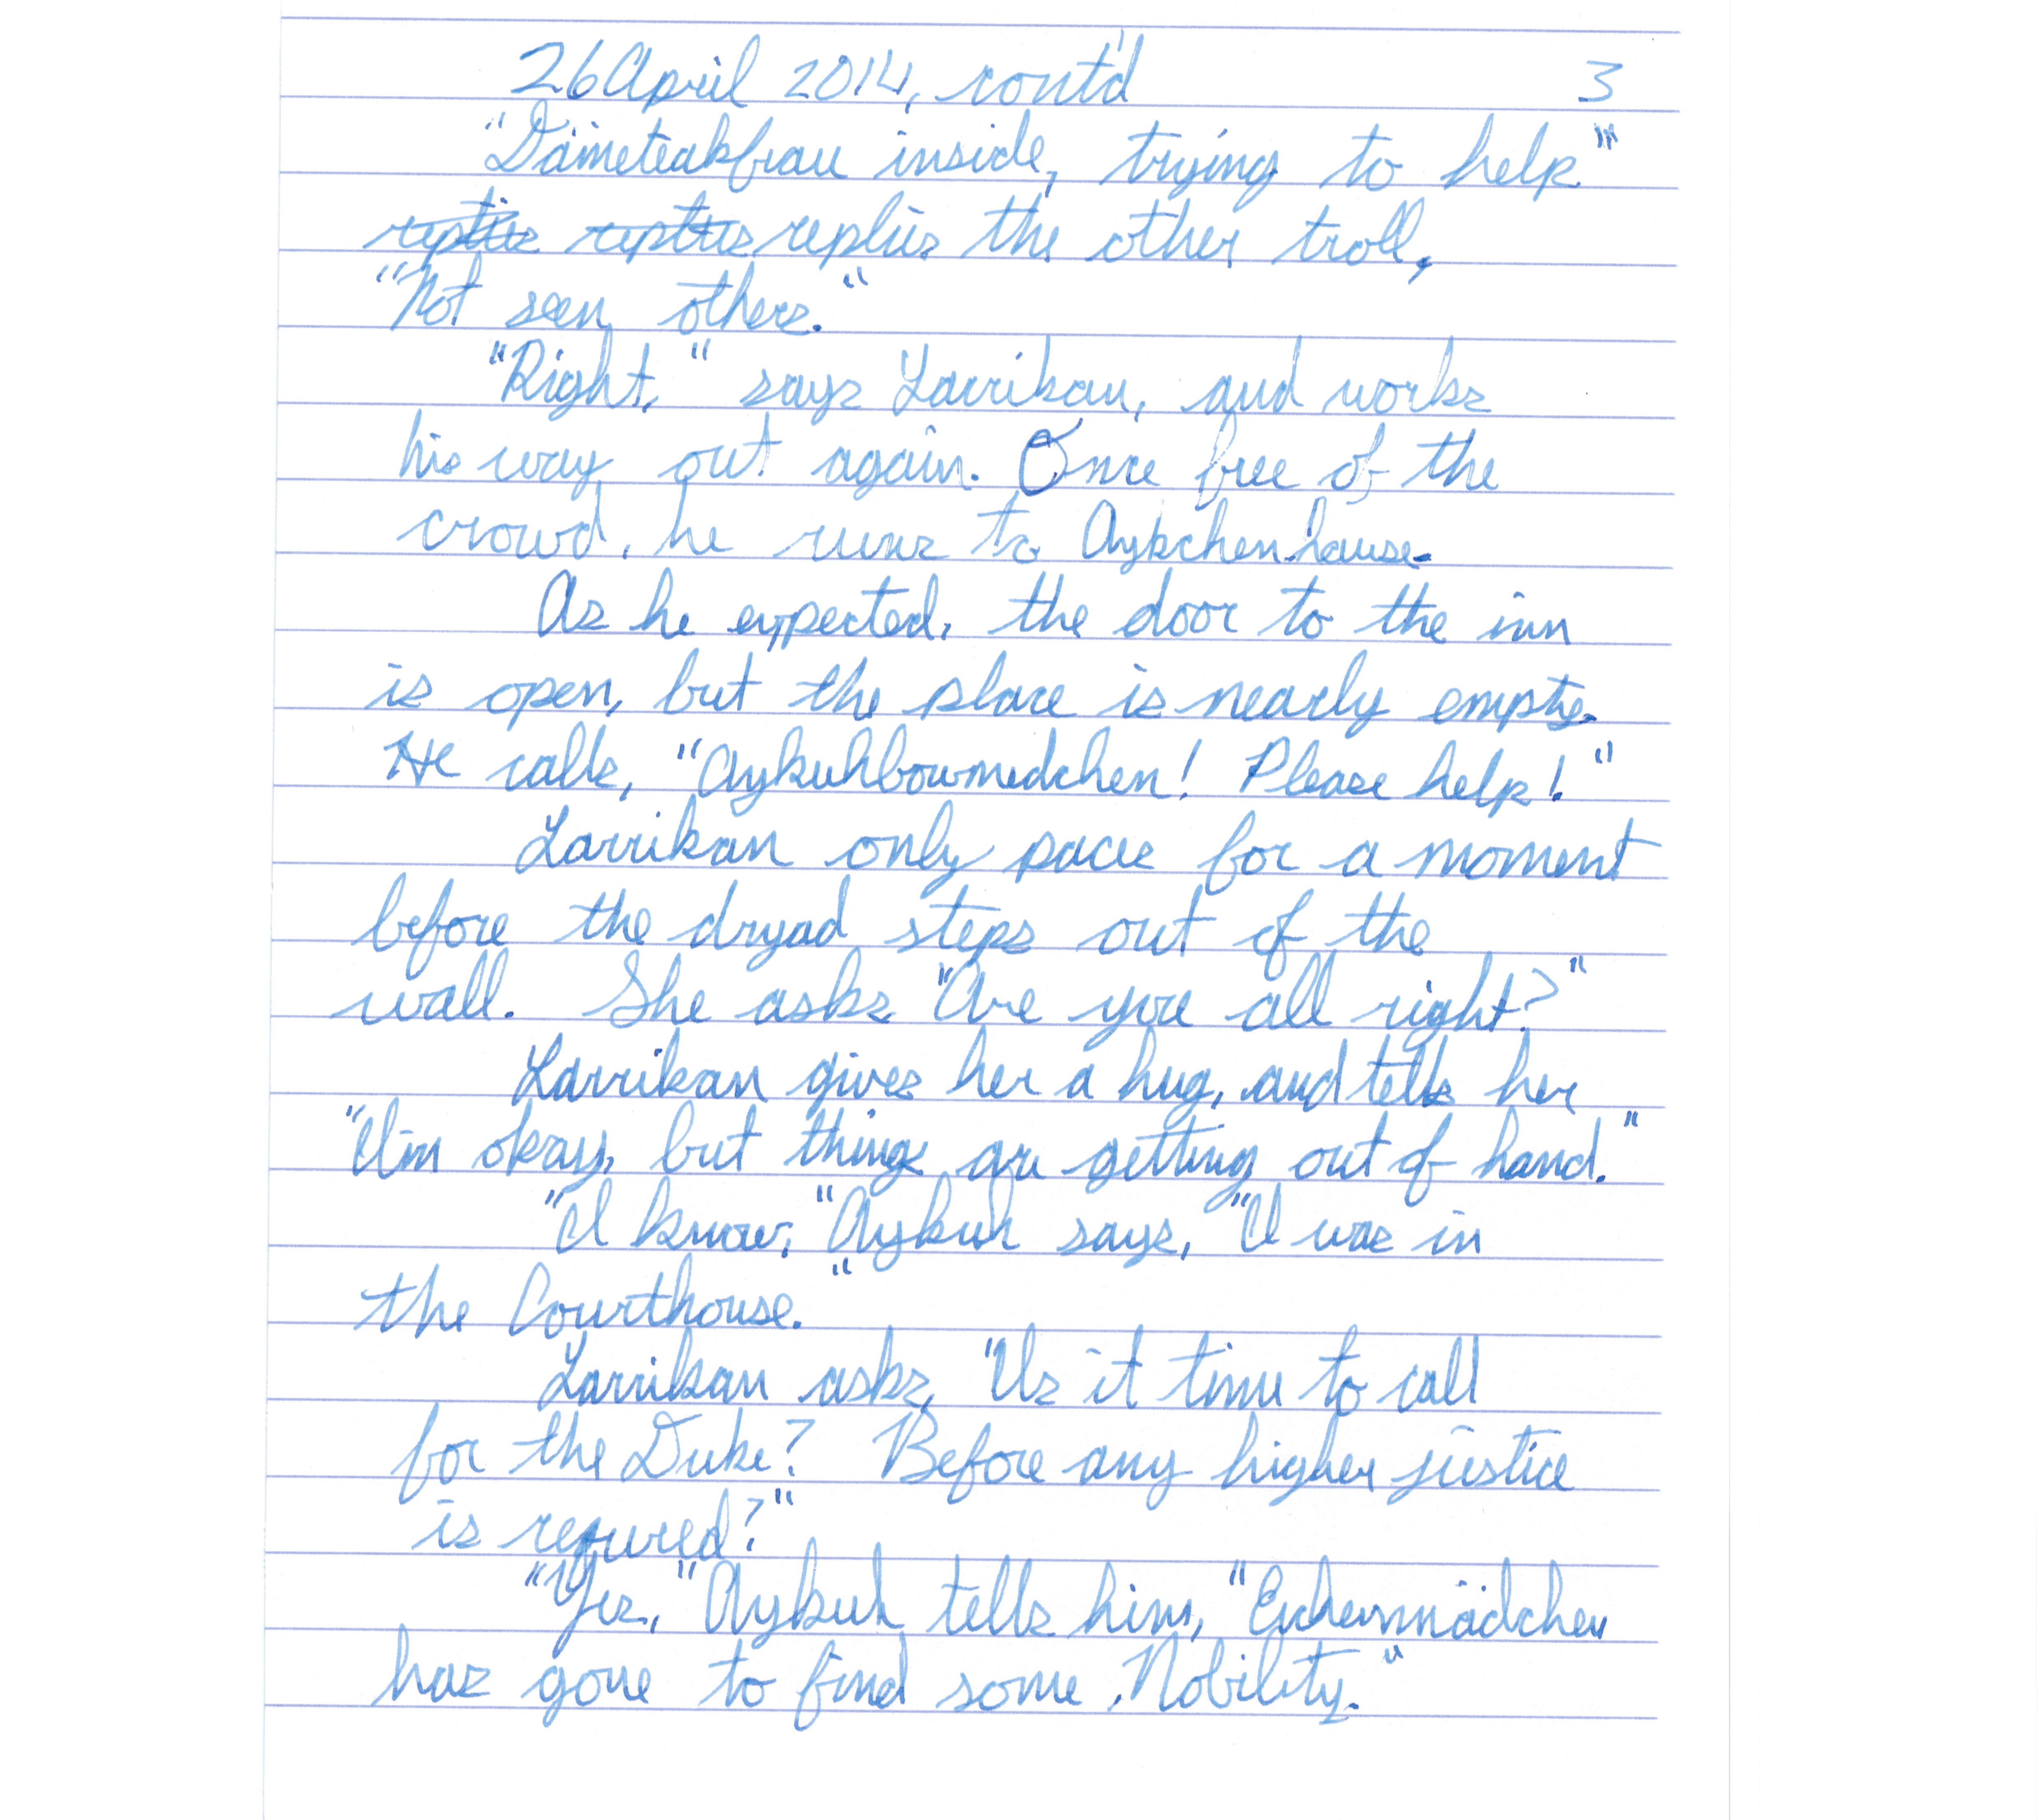 26 April 2014, cont'd 3
"Dämeteakfrau inside, trying to help"
replies the other troll,
"Not seen others."
"Right," says Larrikan, and works
his way out again. Once free of the
crowd, he runs to Aykchenhause.
As he expected, the door to the inn
is open, but the place is nearly empty.
He calls, "Aykuhbowmedchen! Please help!"
Larrikan only paces for a moment
before the dryad steps out of the
wall. She asks "Are you all right?"
Larrikan gives her a hug, and tells her
"I'm okay, but things are getting out of hand."
"I know," Aykuh says, "I was in
the Courthouse."
Larrikan asks, "Is it time to call
for the Duke? Before any higher justice
is required?"
"Yes," Aykuh tells him, "Eichenmädchen
has gone to find some Nobility."